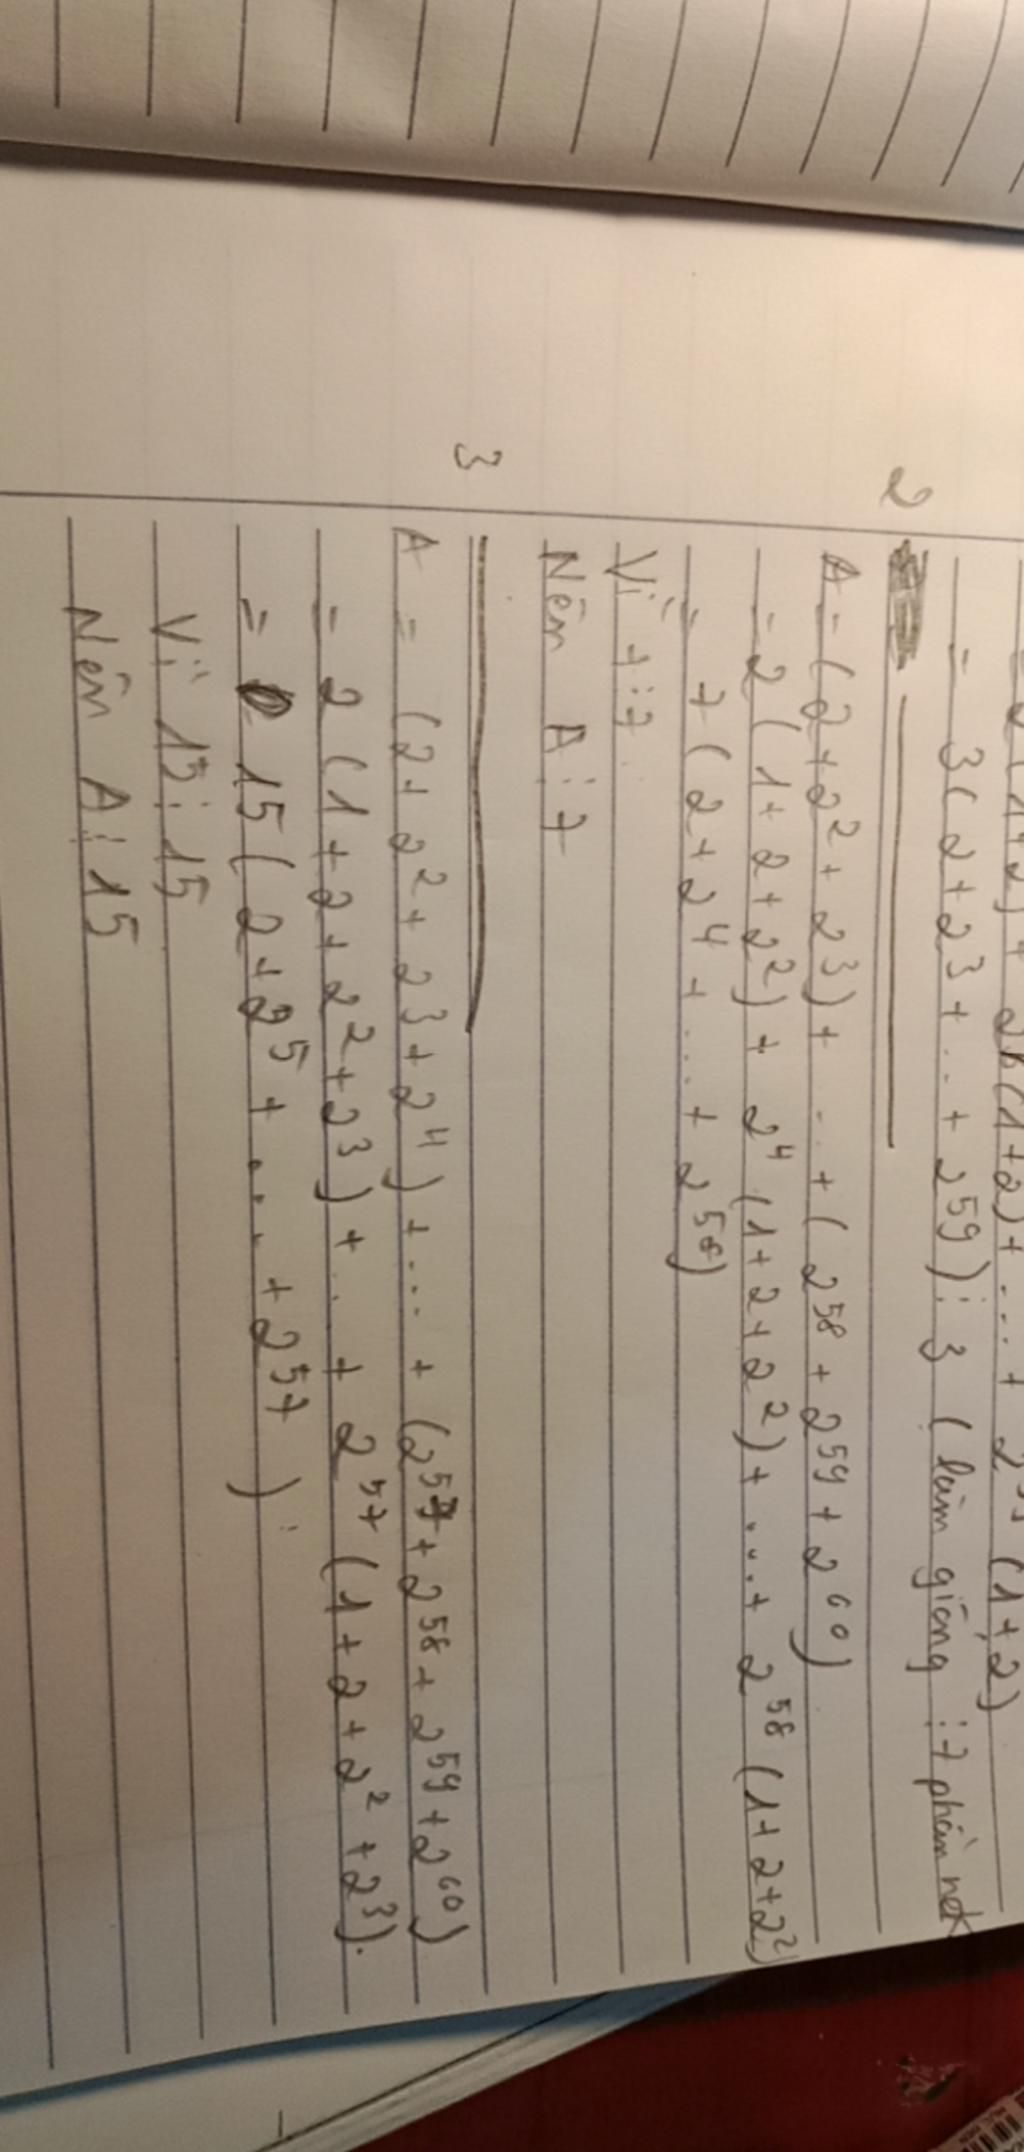 (1+2) + 2^3 (1+2) + .... + 2^59 (1+2)
= 3(2+2^3+...+2^59)⋮3 (làm giống ⋮7 phần nek
2
A = (2+2^2+2^3)+...+(2^58+2^59+2^60)
= 2(1+2+2^2)+2^4(1+2+2^2)+....+2^58(1+2+2^2)
= 7(2+2^4+...+2^58)
Vì 7⋮7
Nên A⋮7
3
A = (2+2^2+2^3+2^4)+...+(2^57+2^58+2^59+2^60)
= 2(1+2+2^2+2^3)+...+2^57(1+2+2^2+2^3).
= 15(2+2^5+....+2^57)⋮
Vì 15⋮15
Nên A⋮15